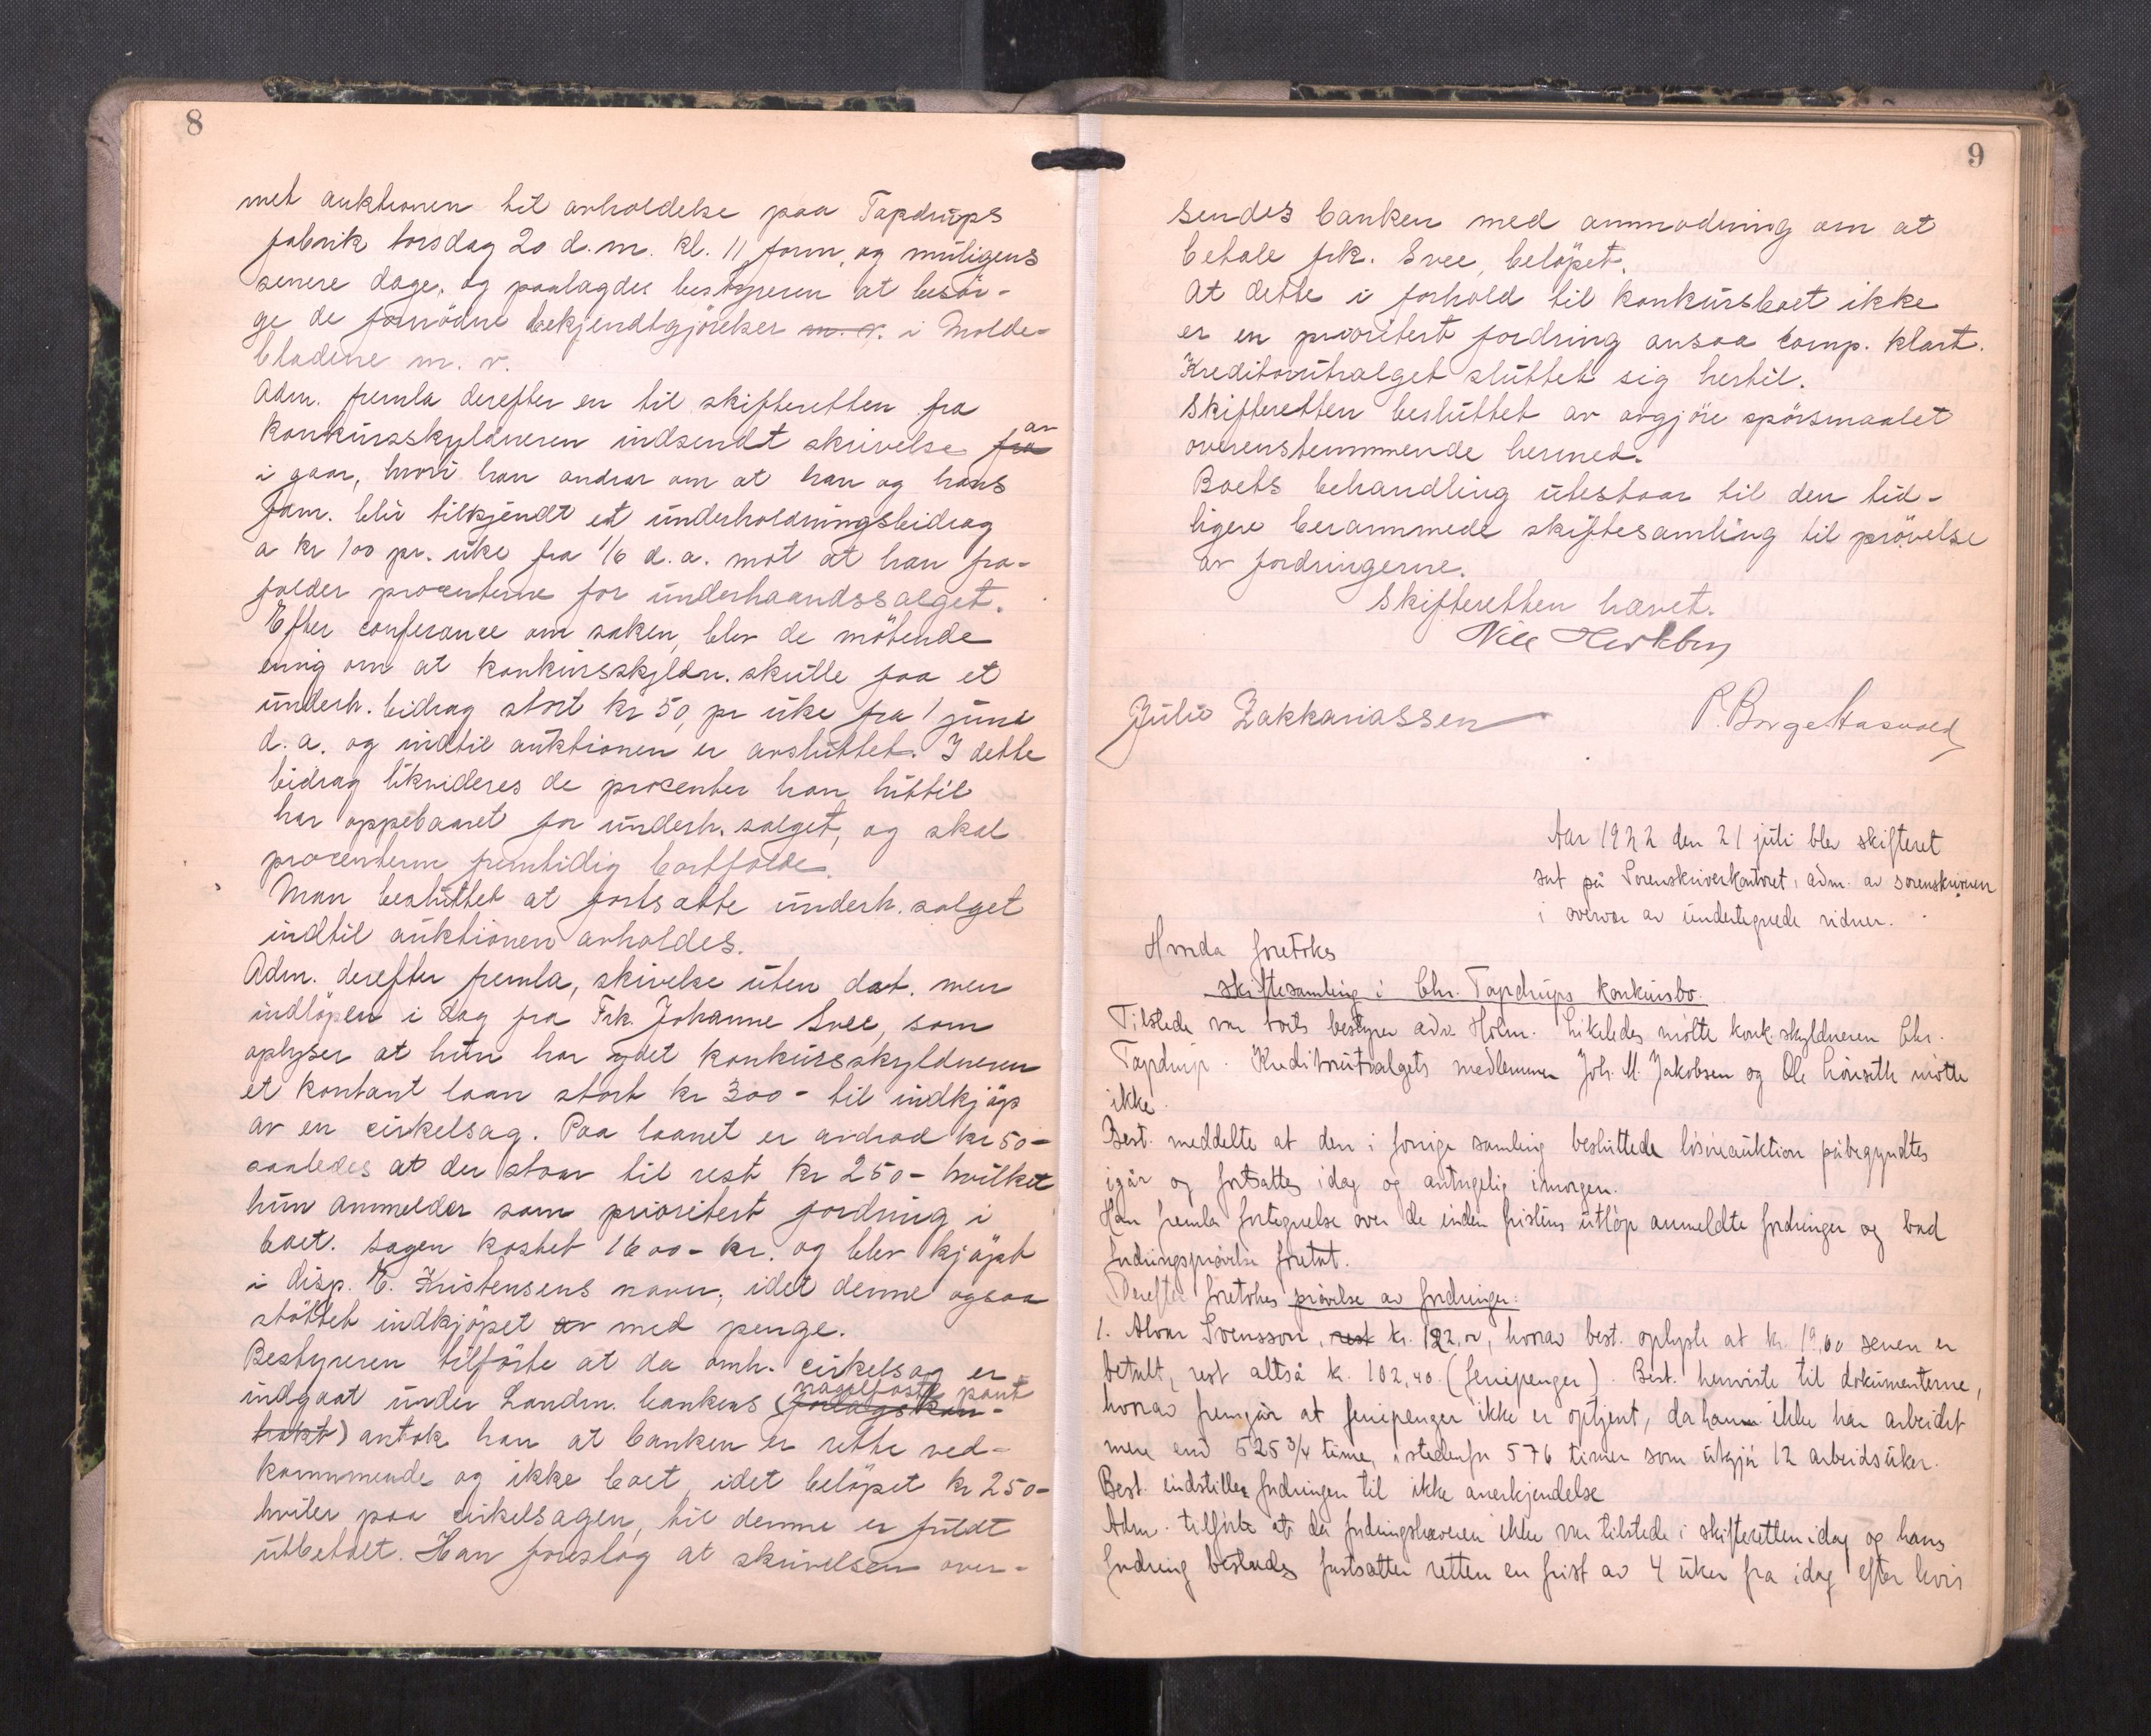 8
met auktionen til avholdelse paa Tapdrups
fabrik torsdag 20 d.m. kl. 11 form, og muligens
senere dage, og paalagdes bestyreren at besör-
ge de fornödne bekjendtgjörelser m. v. i Molde-
bladene m. v.
Adm. fremla derefter en til skifteretten fra
konkursskyldneren indsendt skrivelse fra av
i gaar, hvori han andrar om at han og hans
fam. blir tilkjendt et underholdningsbidrag
a kr 100 pr. uke fra 1/6 d.a. mot at han fra-
falder procenterne for underhaandssalget.
Efter conferance om saken, blev de mötende
enig om at konkursskyldn. skulle faa et
underh. bidrag stort kr 50, pr uke fra 1 juni
d.a. og indtil auktionen er avsluttet. I dette
bidrag likvideres de procenter han hittil
har oppebaaret for underh. salget, og skal
procenterne fremtidig bortfalde.
Man besluttet at fortsætte underh. salget
indtil auktionen avholdes.
Adm. derefter fremla, skrivelse uten dat. men
indlöpen i dag fra Frk. Johanne Svee, som
oplyser at hun har ydet konkursskyldneren
et kontant laan stort kr 300- til indkjöp
av en cirkelsag. Paa laanet er avdrad kr 50-
saaledes at der staar til rest kr 250- hvilket
hun anmelder som prioritert fordring i
boet. Sagen kostet 1600- kr. og blev kjöpt
i disp. E. Kristensens navn, idet denne ogsaa
stöttet indkjöpet av med penge.
Bestyreren tilförte at da omh. cirkelsag er
indgaat under Landm. bankens (forlagskon- pant
trakt) antok han at banken er rette ved-
kommende og ikke boet, idet belöpet kr 250-
hviler paa cirkelsagen, til denne er fuldt
utbetalt. Han foreslog at skrivelsen over-
9
sendes banken med anmodning om at
betale frk. Svee, belöpet.
At dette i forhold til konkursboet ikke
er en prioritert fordring ansaa comp. klart.
Kreditorutvalget sluttet sig hertil.
Skifteretten besluttet av avgjöre spörsmaalet
overenstemmende hermed.
Boets behandling utestaar til den tid-
ligere berammede skiftesamling til prövelse
av fordringerne.
Skifteretten hævet.
Julie Zakkariassen
Aar 1922 den 21 juli blev skifteret
sat på Sorenskriverkontoret, adm. av sorenskriveren
i overvær av undertegnede vidner.
Hvorda foretokes
skiftesamling i Chr. Tapdrups konkursbo.
Tilstede var boets bestyrer adv. Holm. Likeledes mötte konk. skyldneren Chr.
Tapdrup. Kreditorutvalgets medlemmer Joh. M. Jakobsen og Ole mötte
ikke.
Best. meddelte at den i forrige samling besluttede lösöreauktion påbegyndtes
igår og fortsattes idag og antagelig imorgen.
Han fremla fortegnelse over de inden fristens utlöp anmeldte fordringer og bad
fordringsprövelse foretat.
Derefter foretokes prövelse av fordringer:
1. Alvar Svensson, rest kr. 122,00, hvorav best. oplyste at kr. 19,60 senere er
betalt, rest altså kr. 102,40. (feriepenger). Best. henviste til dokumenterne,
hvorav fremgår at feriepenger ikke er optjent, da han ikke har arbeidet
mere end 525 3/4 time, istedenfor 576 timer som utgjör 12 arbeidsuker.
Best. indstiller fordringen til ikke anerkjendelse
Adm. tilförte at da fordringshaveren ikke var tilstede i skifteretten idag og hans
fordring bestredes fastsatter retten en frist av 4 uker fra idag efter hvis